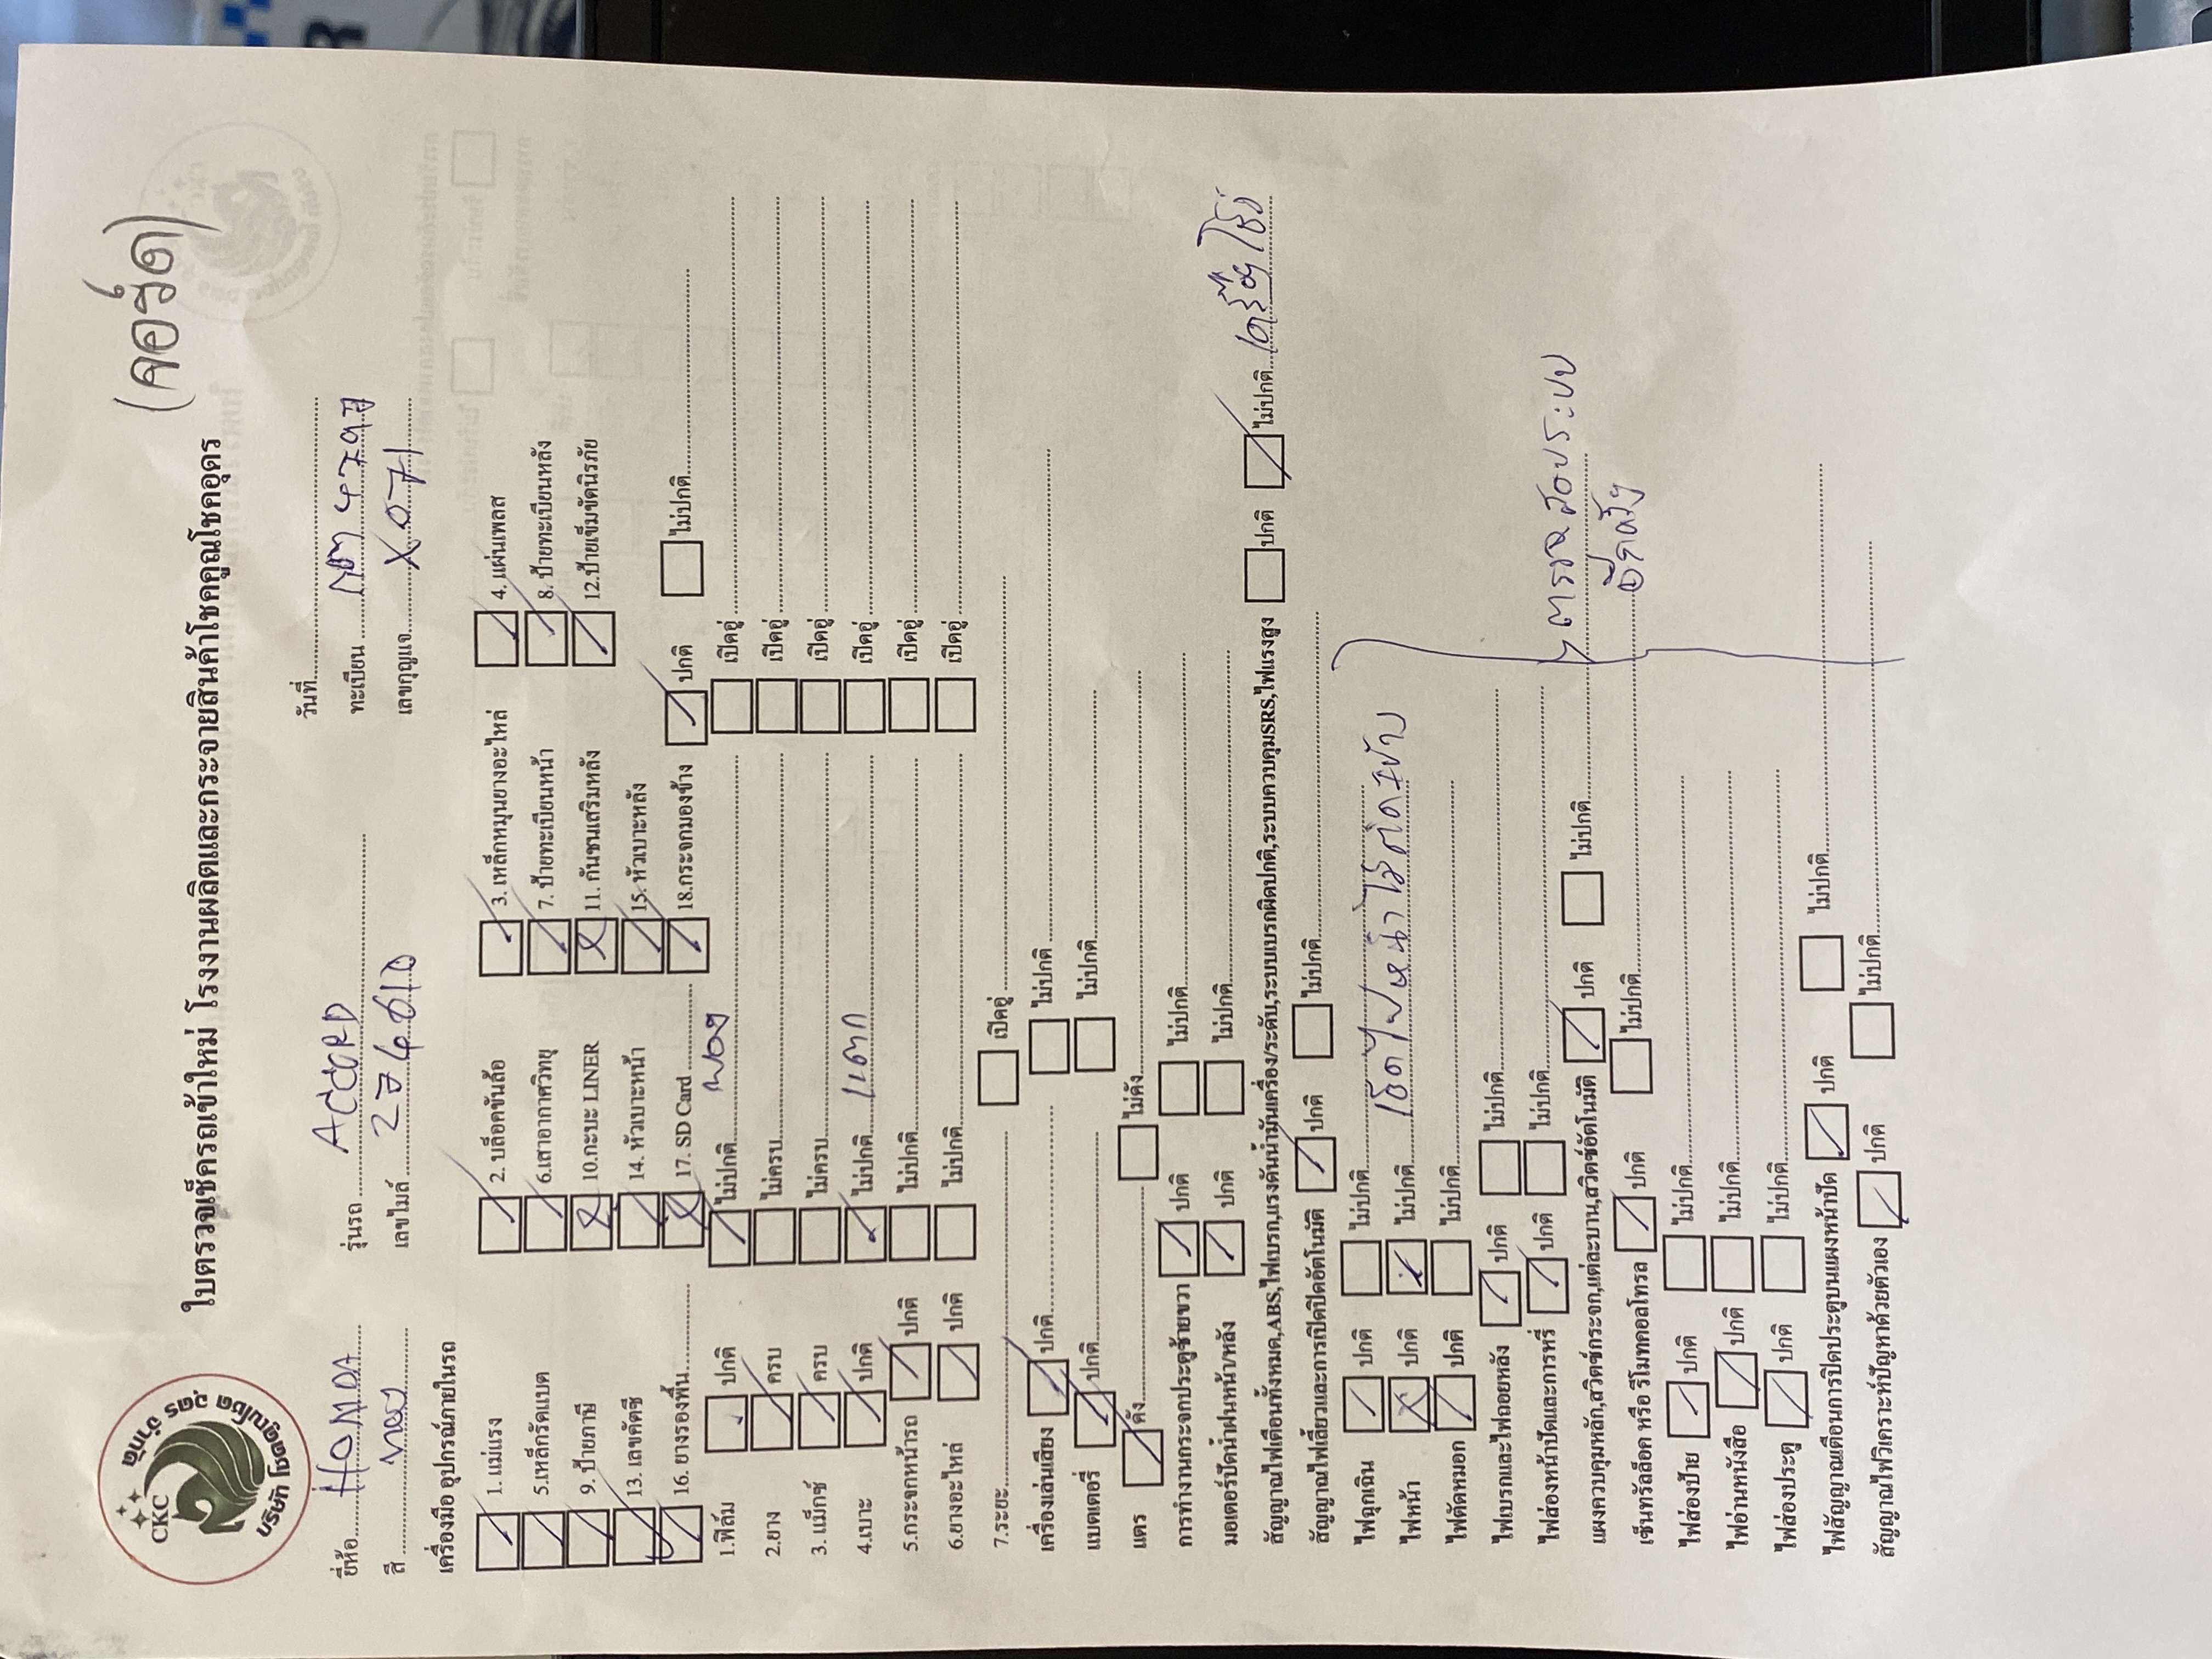 (คอร์ด)
CKC
บริษัท โชคคูณโชค อุดร จำกัด
ใบตรวจเช็ครถเข้าใหม่ โรงงานผลิตและกระจายสินค้าโชคคูณโชคอุดร
วันที่
ยี่ห้อ HONDA รุ่นรถ ACCORD ทะเบียน
สี ทอง เลขไมล์ เลขกุญแจ X.071
เครื่องมือ อุปกรณ์ภายในรถ
1. แม่แรง 2. บล็อคขันล้อ 3. เหล็กหมุนยางอะไหล่ 4. แผ่นเพลส
5.เหล็กรัดแบต 6.เสาอากาศวิทยุ 7. ป้ายทะเบียนหน้า 8. ป้ายทะเบียนหลัง
9. ป้ายภาษี 10.กะบะ LINER 11. กันชนเสริมหลัง 12.ป้ายเข็มขัดนิรภัย
13. เลขคัตซี 14. หัวเบาะหน้า 15. หัวเบาะหลัง
16. ยางรองพื้น 17. SD Card 18.กระจกมองข้าง ปกติ ไม่ปกติ
1.ฟิล์ม ปกติ ไม่ปกติ พอง เปิดอู่
2.ยาง ครบ ไม่ครบ เปิดอู่
3. แม็กซ์ ครบ ไม่ครบ เปิดอู่
4.เบาะ ปกติ ไม่ปกติ แตก เปิดอู่
5.กระจกหน้ารถ ปกติ ไม่ปกติ เปิดอู่
6.ยางอะไหล่ ปกติ ไม่ปกติ เปิดอู่
7.ระยะ เปิดอู่
เครื่องเล่นเสียง ปกติ ไม่ปกติ
แบตเตอรี่ ปกติ ไม่ปกติ
แตร ดัง ไม่ดัง
การทำงานกระจกประตูซ้ายขวา ปกติ ไม่ปกติ
มอเตอร์ปัดน้ำฝนหน้า/หลัง ปกติ ไม่ปกติ
สัญาณไฟเตือนทั้งหมด,ABS,ไฟเบรก,แรงดันน้ำมันเครื่อง/ระดับ,ระบบเบรกผิดปกติ,ระบบควบคุมSRS,ไฟแรงสูง ปกติ ไม่ปกติ เครื่องโชว์
สัญาณไฟเลี้ยวและการเปิดปิดอัตโนมัติ ปกติ ไม่ปกติ
ไฟฉุกเฉิน ปกติ ไม่ปกติ
ไฟหน้า ปกติ ไม่ปกติ เปิดไฟหน้าไม่ติด
ไฟตัดหมอก ปกติ ไม่ปกติ
ไฟเบรกและไฟถอยหลัง ปกติ ไม่ปกติ
ไฟส่องหน้าปัดและการหรี่ ปกติ ไม่ปกติ
ตรวจสอบระบบ
อีกครั้ง
แผงควบคุมหลัก,สวิตซ์กระจก,แต่ละบาน,สวิตซ์อัตโนมัติ ปกติ ไม่ปกติ
เซ็นทรัลล็อค หรือ รีโมทคอลโทรล ปกติ ไม่ปกติ
ไฟส่องป้าย ปกติ ไม่ปกติ
ไฟอ่านหนังสือ ปกติ ไม่ปกติ
ไฟส่องประตู ปกติ ไม่ปกติ
ไฟสัญญาณเตือนการปิดประตูบนแผงหน้าปัด ปกติ ไม่ปกติ
สัญญาณไฟวิเคราะห์ปัญหาด้วยตัวเอง ปกติ ไม่ปกติ